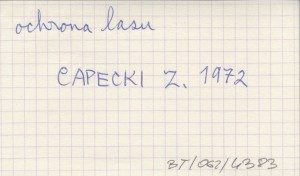 ochrona lasu
CAPECKI Z. 1972
BT/062/4383